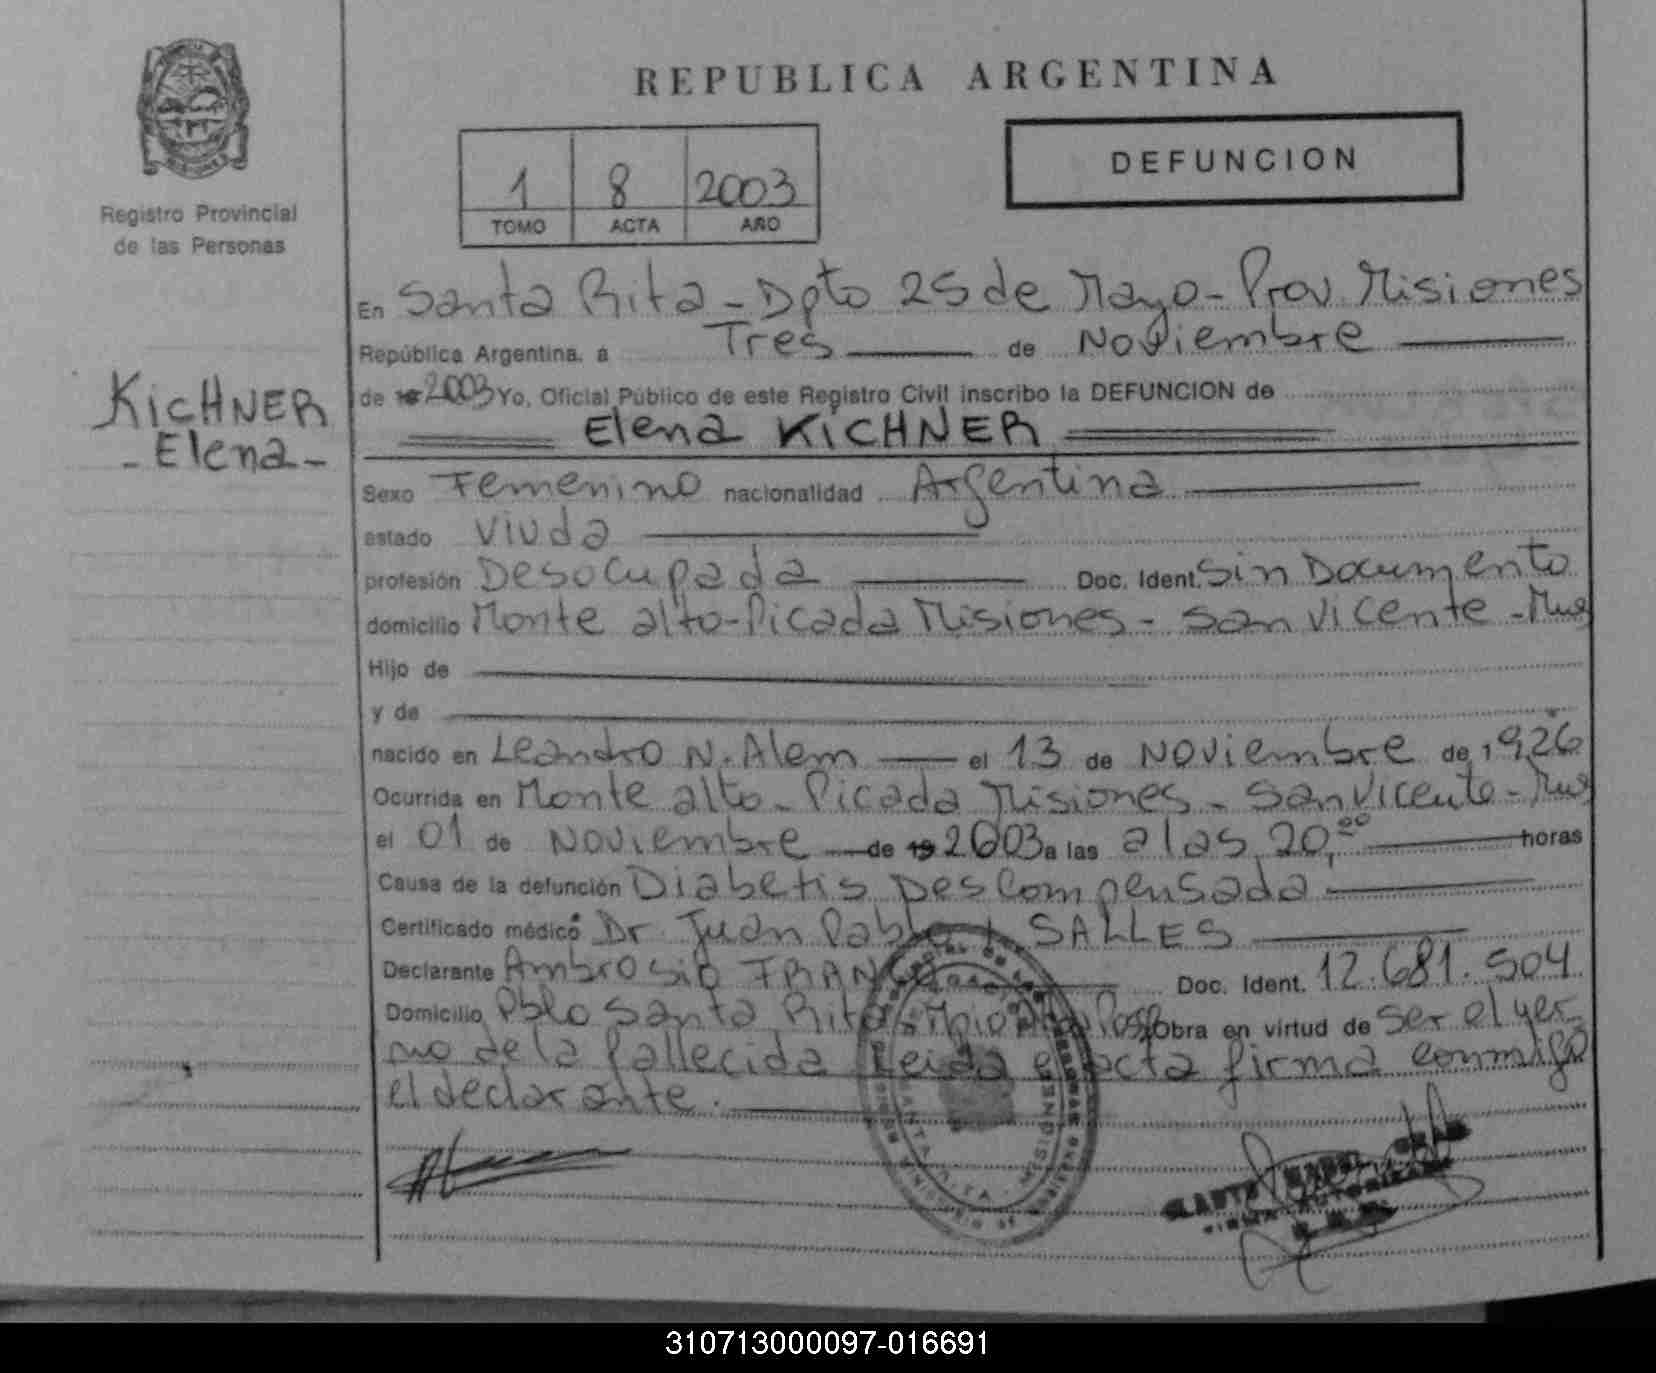 REPUBLICA ARGENTINA
DEFUNCION
1 8 2003
TOMO ACTA AÑO
Registro Provincial
de las Personas
KiCHNER
- Elena -
En Santa Rita - Dpto 25 de Mayo - Prov. Misiones
República Argentina, a Tres de Noviembre
de 19 2003 Yo, Oficial Público de este Registro Civil inscribo la DEFUNCION de
Elena KiCHNER
Sexo Femenino nacionalidad Argentina
estado Viuda
profesión Desocupada Doc. Ident. Sin Documento
domicilio Monte alto - Picada Misiones - San Vicente - Mnes
Hijo de
y de
nacido en Leandro N. Alem el 13 de Noviembre de 1926
Ocurrida en Monte alto - Picada Misiones - San Vicente - Mnes
el 01 de Noviembre de 19 2003 a las a las 20,00 horas
Causa de la defunción Diabetis Descompensada
Certificado médico Dr. Juan Pablo SALLES
Declarante Ambrosio FRANCO Doc. Ident. 12.681.504
Domicilio Pblo Santa Rita obra en virtud de ser el yer-
no de la fallecida Leida el acta firma conmigo
el declarante.
SANTA RITA - MISIONES
310713000097-016691